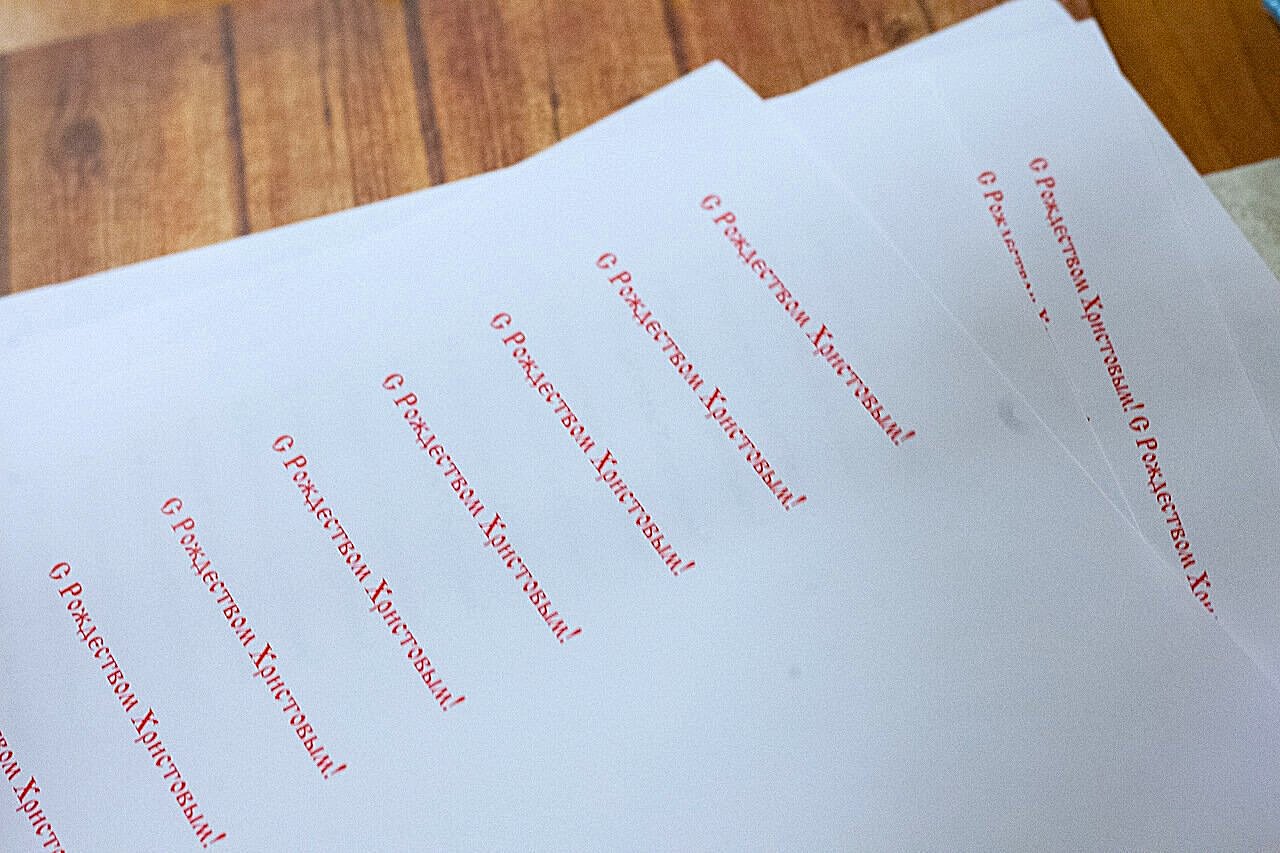 С Рождеством Христовым!
С Рождеством Христовым!
С Рождеством Христовым!
С Рождеством Христовым!
С Рождеством Христовым!
С Рождеством Христовым!
С Рождеством Христовым!
С Рождеством Христовым! С Рождеством
С